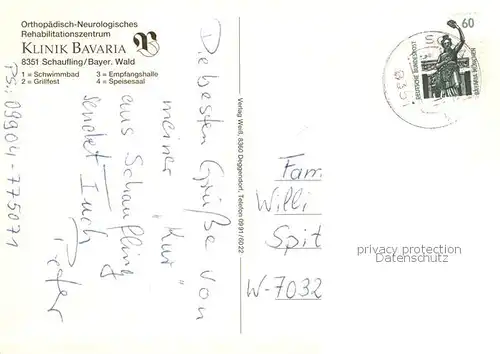 Orthopädisch-Neurologisches
Rehabilitationszentrum
KLINIK BAVARIA B
8351 Schaufling/Bayer. Wald
1 = Schwimmbad 3 = Empfangshalle
2 = Grillfest 4 = Speisesaal
Die besten Grüße von
meiner "Kur"
aus Schaufling
sendet Euch
Peter
PS.: 09904-775071
Verlag Weiß, 8360 Deggendorf, Telefon 0991/6922
60
DEUTSCHE BUNDESPOST
BAVARIA MÜNCHEN
8351
Fam.
Willi
Spit
W-7032
privacy protection
Datenschutz